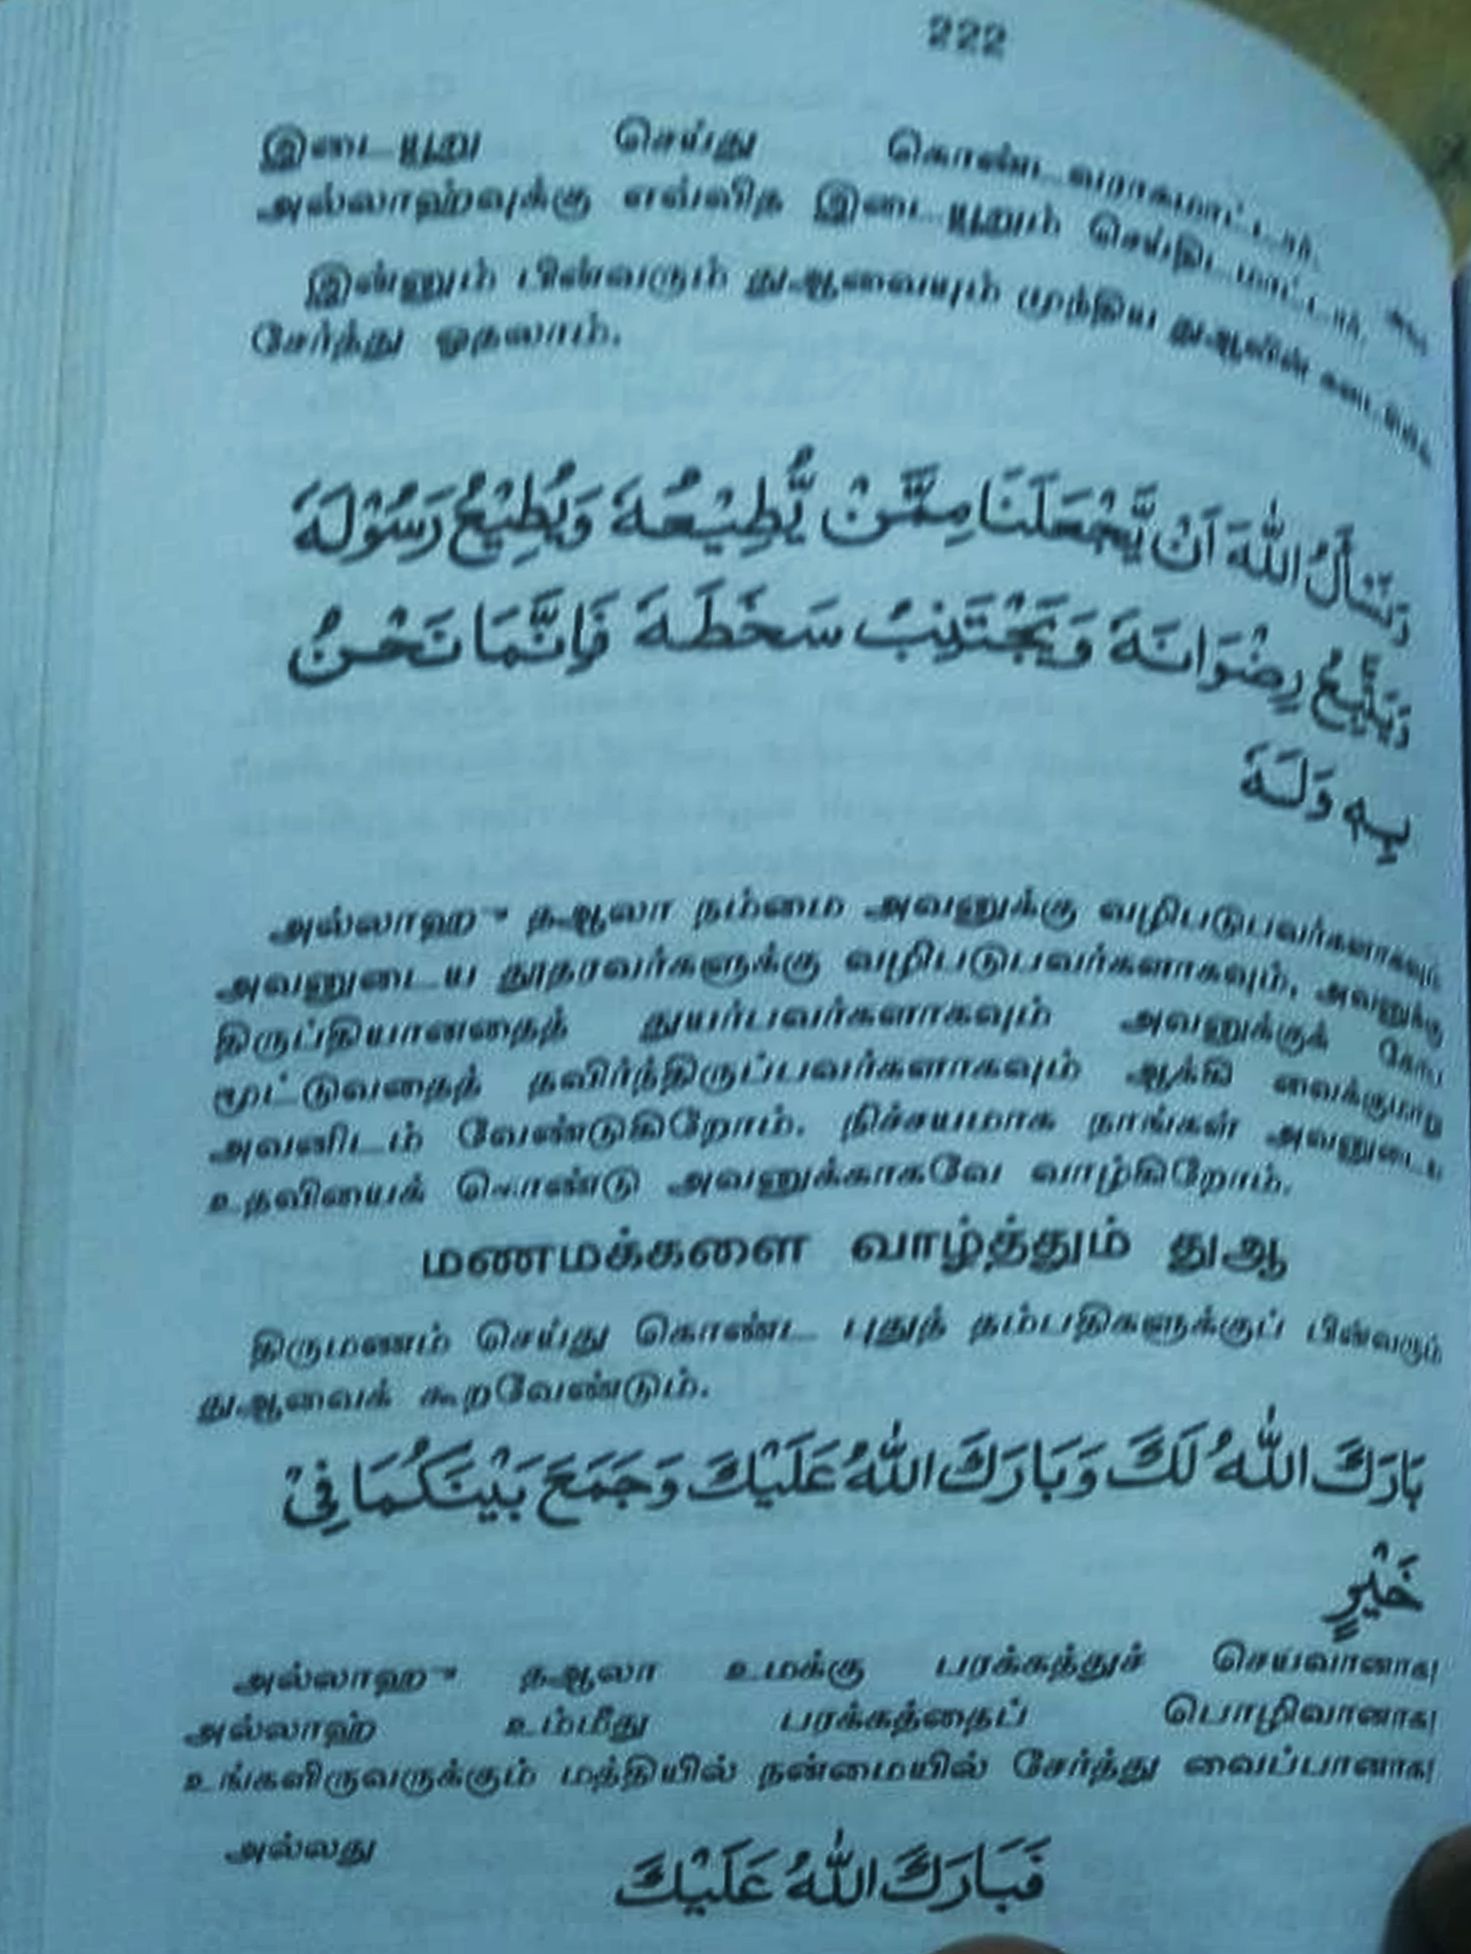 222
இடையூறு செய்து கொண்டவராகமாட்டார்.
அல்லாஹ்வுக்கு எவ்வித இடையூறும் செய்திடமாட்டார்.
இன்னும் பின்வரும் துஆவையும் முந்திய துஆவின்
சேர்த்து ஓதலாம்.
وَنَسْأَلُ اللّٰهَ اَنْ يَّجْعَلَنَا مِمَّنْ يُّطِيْعُهٗ وَيُطِيْعُ رَسُوْلَهٗ
وَيَتَّبِعُ رِضْوَانَهٗ وَيَجْتَنِبُ سَخَطَهٗ فَاِنَّمَا نَحْنُ
بِهٖ وَلَهٗ
அல்லாஹு தஆலா நம்மை அவனுக்கு வழிபடுபவர்களாகவும்
அவனுடைய தூதரவர்களுக்கு வழிபடுபவர்களாகவும், அவனுக்கு
திருப்தியானதைத் துயர்பவர்களாகவும் அவனுக்குக் கோப
மூட்டுவதைத் தவிர்ந்திருப்பவர்களாகவும் ஆக்கி வைக்குமாறு
அவனிடம் வேண்டுகிறோம். நிச்சயமாக நாங்கள் அவனுடைய
உதவியைக் கொண்டு அவனுக்காகவே வாழ்கிறோம்.
மணமக்களை வாழ்த்தும் துஆ
திருமணம் செய்து கொண்ட புதுத் தம்பதிகளுக்குப் பின்வரும்
துஆவைக் கூறவேண்டும்.
بَارَكَ اللّٰهُ لَكَ وَبَارَكَ اللّٰهُ عَلَيْكَ وَجَمَعَ بَيْنَكُمَا فِيْ
خَيْرٍ
அல்லாஹு தஆலா உமக்கு பரக்கத்துச் செய்வானாக!
அல்லாஹ் உம்மீது பரக்கத்தைப் பொழிவானாக!
உங்களிருவருக்கும் மத்தியில் நன்மையில் சேர்த்து வைப்பானாக!
அல்லது
فَبَارَكَ اللّٰهُ عَلَيْكَ